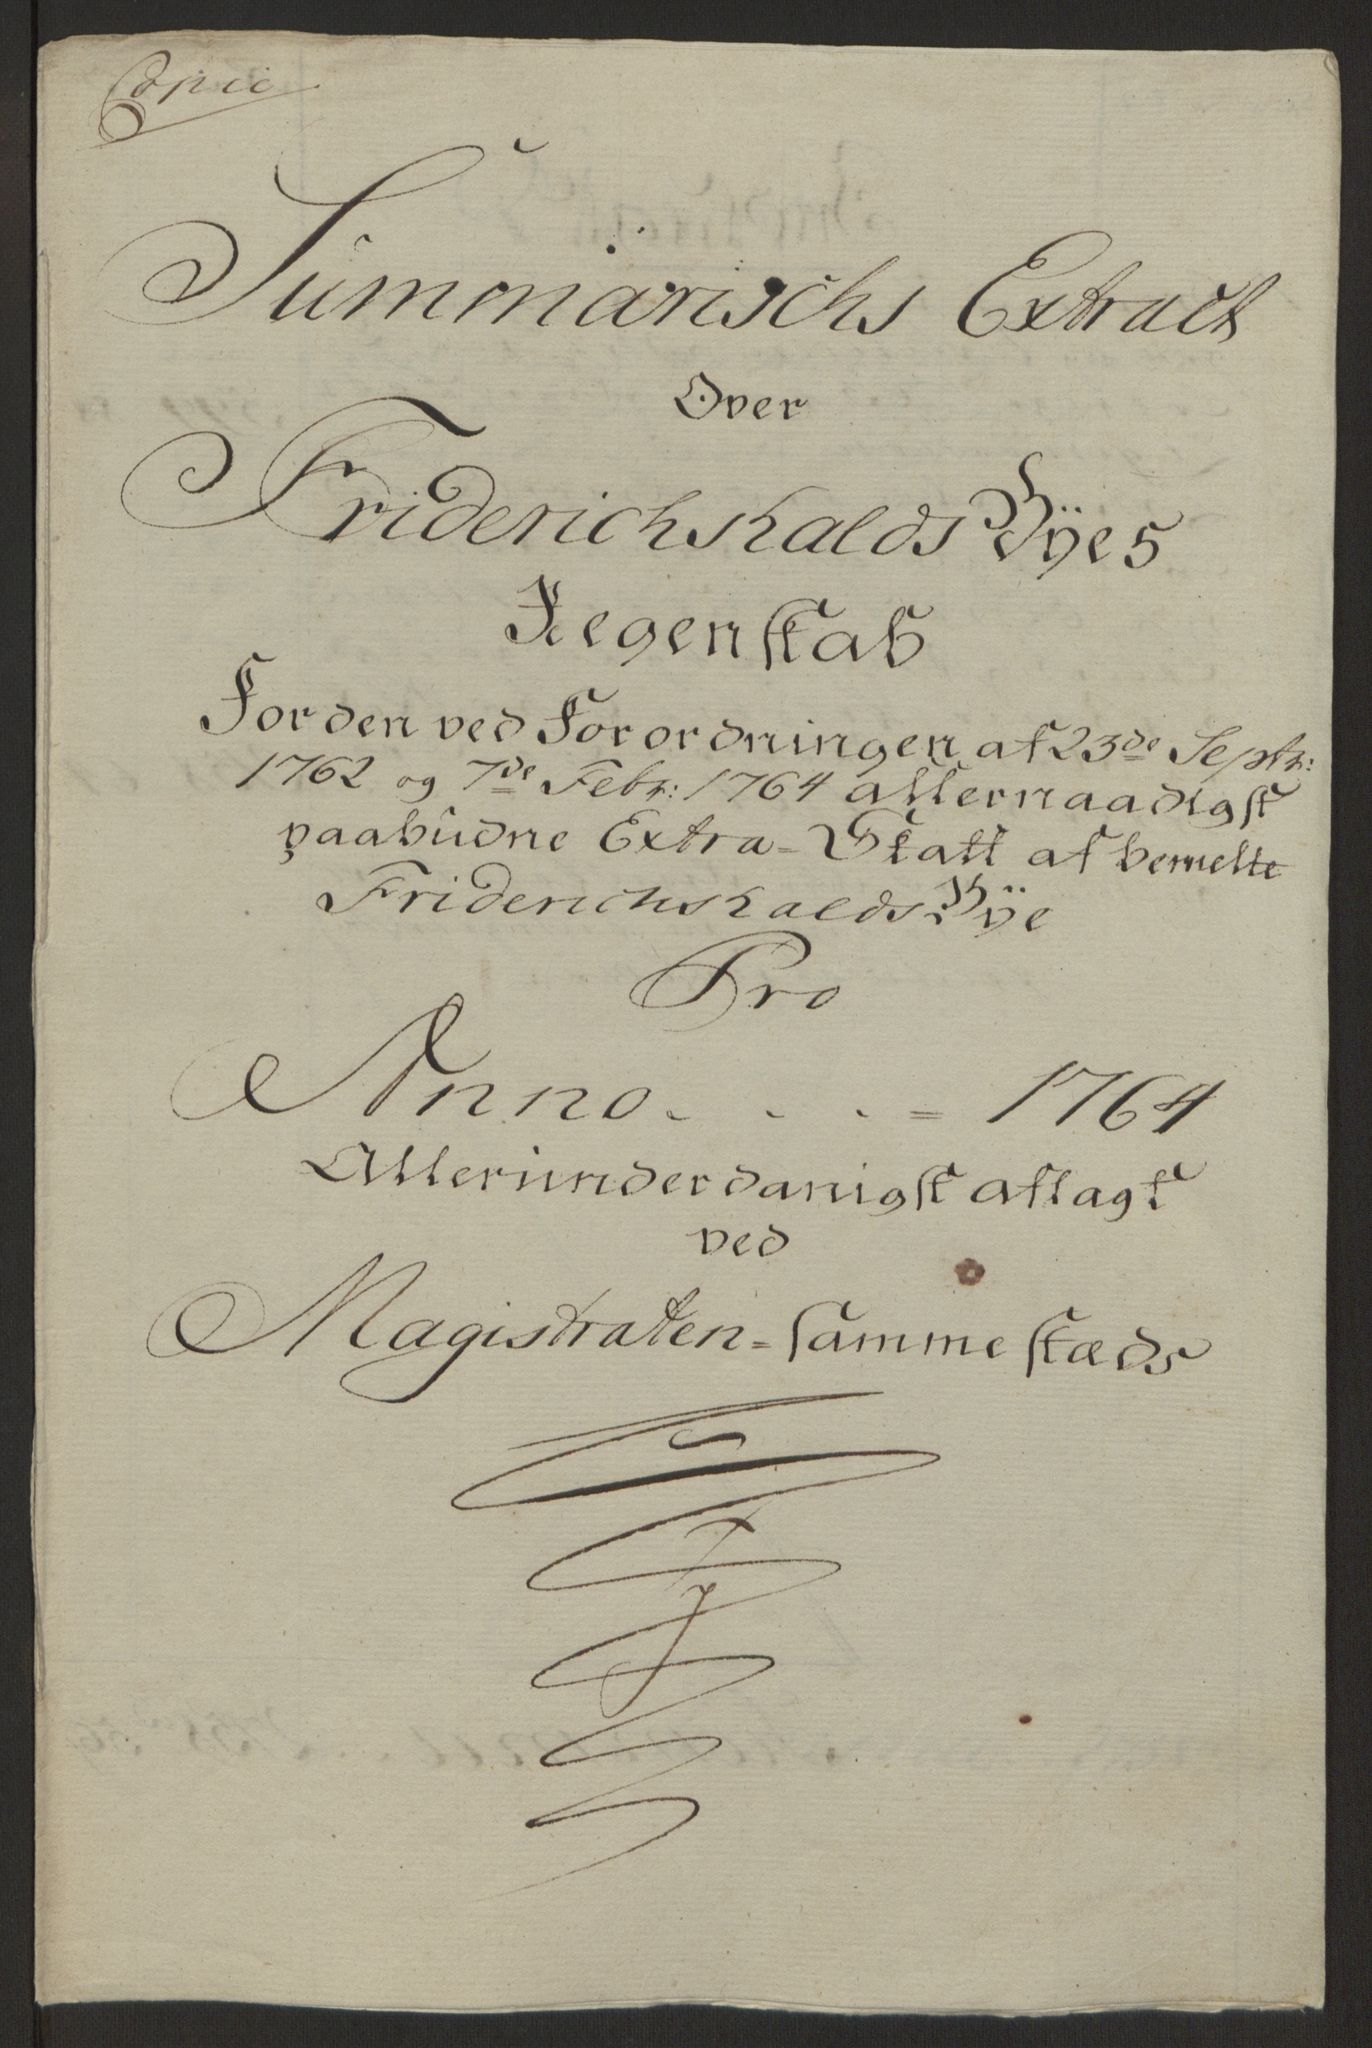 Copie
Summarischs Extract
Over
Friderichshalds Bÿes
Regenskab
For den ved Forordningen af 23de Septr:
1762 og 7de Febr: 1764 allernaadigst
paabudne Extra-Skatt af bemelte
Friderichshalds Bÿe
Pro
Anno - - - = 1764
Allerunderdanigst aflagt
ved
Magistraten = sammestæds